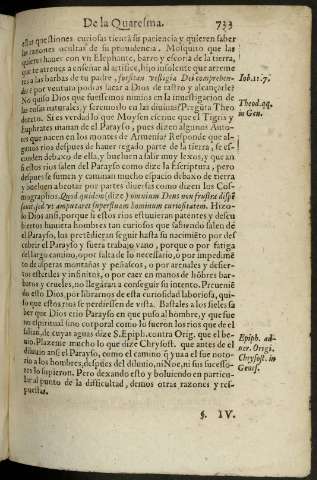 De la Quaresma. 733
estas questiones curiosas tientã su paciencia y quieren saber
las razones ocultas de su prouidencia. Mosquito que las
quieres hauer con vn Elephante, barro y escoria de la tierra,
que te atreues a enseñar al artifice, hijo insolente que arreme
tes a las barbas de tu padre, forsitan vestigia Dei comprehen-
des? por ventura podras sacar a Dios de rastro y alcançarle?
Iob. 11. 7.
No quiso Dios que fuessemos nimios en la inuestigacion de
las cosas naturales, y seremoslo en las diuinas? Pregũta Theo
Theod. qq.
in Gen.
doreto. Si es verdad lo que Moysen escriue que el Tigris y
Euphrates manan del Parayso, pues dizen algunos Auto-
res que nacen en los montes de Armenia? Responde que al-
gunos rios despues de hauer regado parte de la tierra, se es-
conden debaxo de ella, y bueluen a salir muy lexos, y que an
si estos rios salen del Parayso como dize la escriptura, pero
despues se sumen y caminan mucho espacio debaxo de tierra
y bueluen a brotar por partes diuersas como dizen los Cos-
mographos. Quod quidem (dize) omnium Deus non frustra dispẽ
sauit, sed vt amputaret superfluam hominum curiositatem. Hizo-
lo Dios ansi, porque si estos rios estuuieran patentes y descu
biertos huuiera hombres tan curiosos que sabiendo salen de
el Parayso, los pretẽdieran seguir hasta su nacimiẽto por des
cobrir el Parayso y fuera trabajo vano, porque o por fatiga
del largo camino, o por falta de lo necessario, o por impedimẽ
to de asperas montañas y peñascos, o por arenales y desier-
tos esteriles y infinitos, o por caer en manos de hõbres bar-
baros y crueles, no llegaran a conseguir su intento. Preuiniẽ
do esto Dios, por librarnos de esta curiosidad laboriosa, qui-
so que estos rios se perdiessen de vista. Bastales a los fieles sa
ber que Dios crio Parayso en que puso al hombre, y que fue
no espiritual sino corporal como lo fueron los rios que de el
salian, de cuyas aguas dize S. Epiph. contra Orig. que el be-
Epiph. ad-
uer. Orig.
uio. Plazeme mucho lo que dize Chrysost. que antes de el
Chrysost. in
Genes.
diluuio ansi el Parayso, como el camino q̃ yua a el fue noto-
rio a los hombres, despues del diluuio, ni Noe, ni sus successo-
res lo supieron. Pero dexando esto y boluiendo en particu-
lar al punto de la difficultad, demos otras razones y res-
puestas.
§. IV.